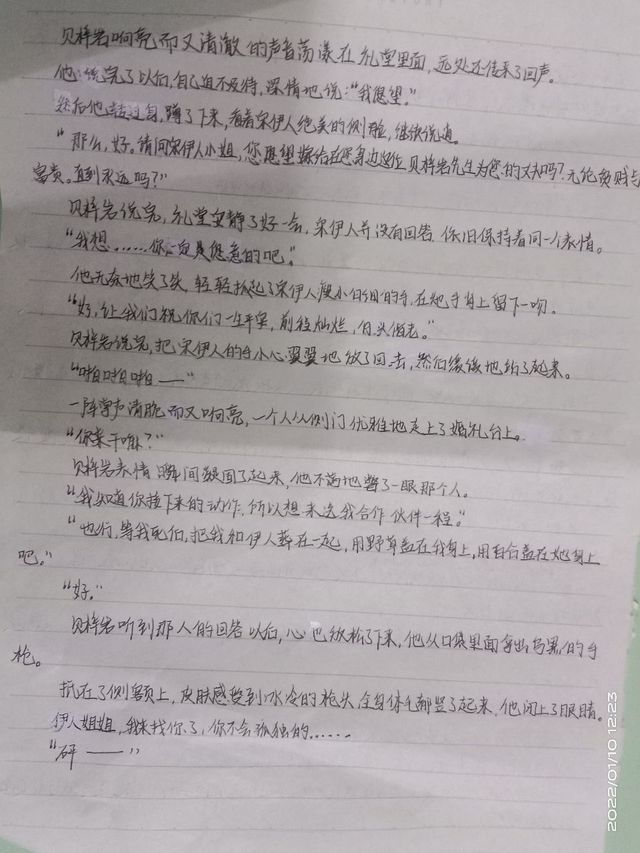 贝梓岩响亮而又清澈的声音荡漾在礼堂里面,远处还传来了回声。
他说完了以后,自己迫不及待,深情地说:“我愿望。”
然后他转过身,蹲了下来,看着宋伊人绝美的侧脸,继续说道。
“那么,好。请问宋伊人小姐,您愿望嫁给在您身边这位贝梓岩先生为您的丈夫吗?无论贫贱与
富贵。直到永远吗?”
贝梓岩说完,礼堂安静了好一会,宋伊人并没有回答,依旧保持着同一个表情。
“我想……你一定是愿意的吧。”
他无奈地笑了笑,轻轻抓起了宋伊人瘦小白细的手,在她手背上留下一吻。
“好,让我们祝你们一生平安,前程灿烂,白头偕老。”
贝梓岩说完,把宋伊人的手小心翼翼地放了回去,然后缓缓地站了起来。
“啪啪啪——”
一阵掌声清脆而又响亮,一个人从侧门优雅地走上了婚礼台上。
“你来干嘛?”
贝梓岩表情瞬间狠了起来,他不满地瞥了一眼那个人。
“我知道你接下来的动作,所以想来送我合作伙伴一程。”
“也行,等我死后,把我和伊人葬在一起,用野草盖在我身上,用百合盖在她身上
吧。”
“好。”
贝梓岩听到那人的回答以后,心也放松了下来,他从口袋里面拿出乌黑的手
枪。
抵在了侧额上,皮肤感受到冰冷的枪头,全身体毛都竖了起来,他闭上了眼睛。
伊人姐姐,我来找你了,你不会孤独的……
“砰——”
2022/01/10 12:23